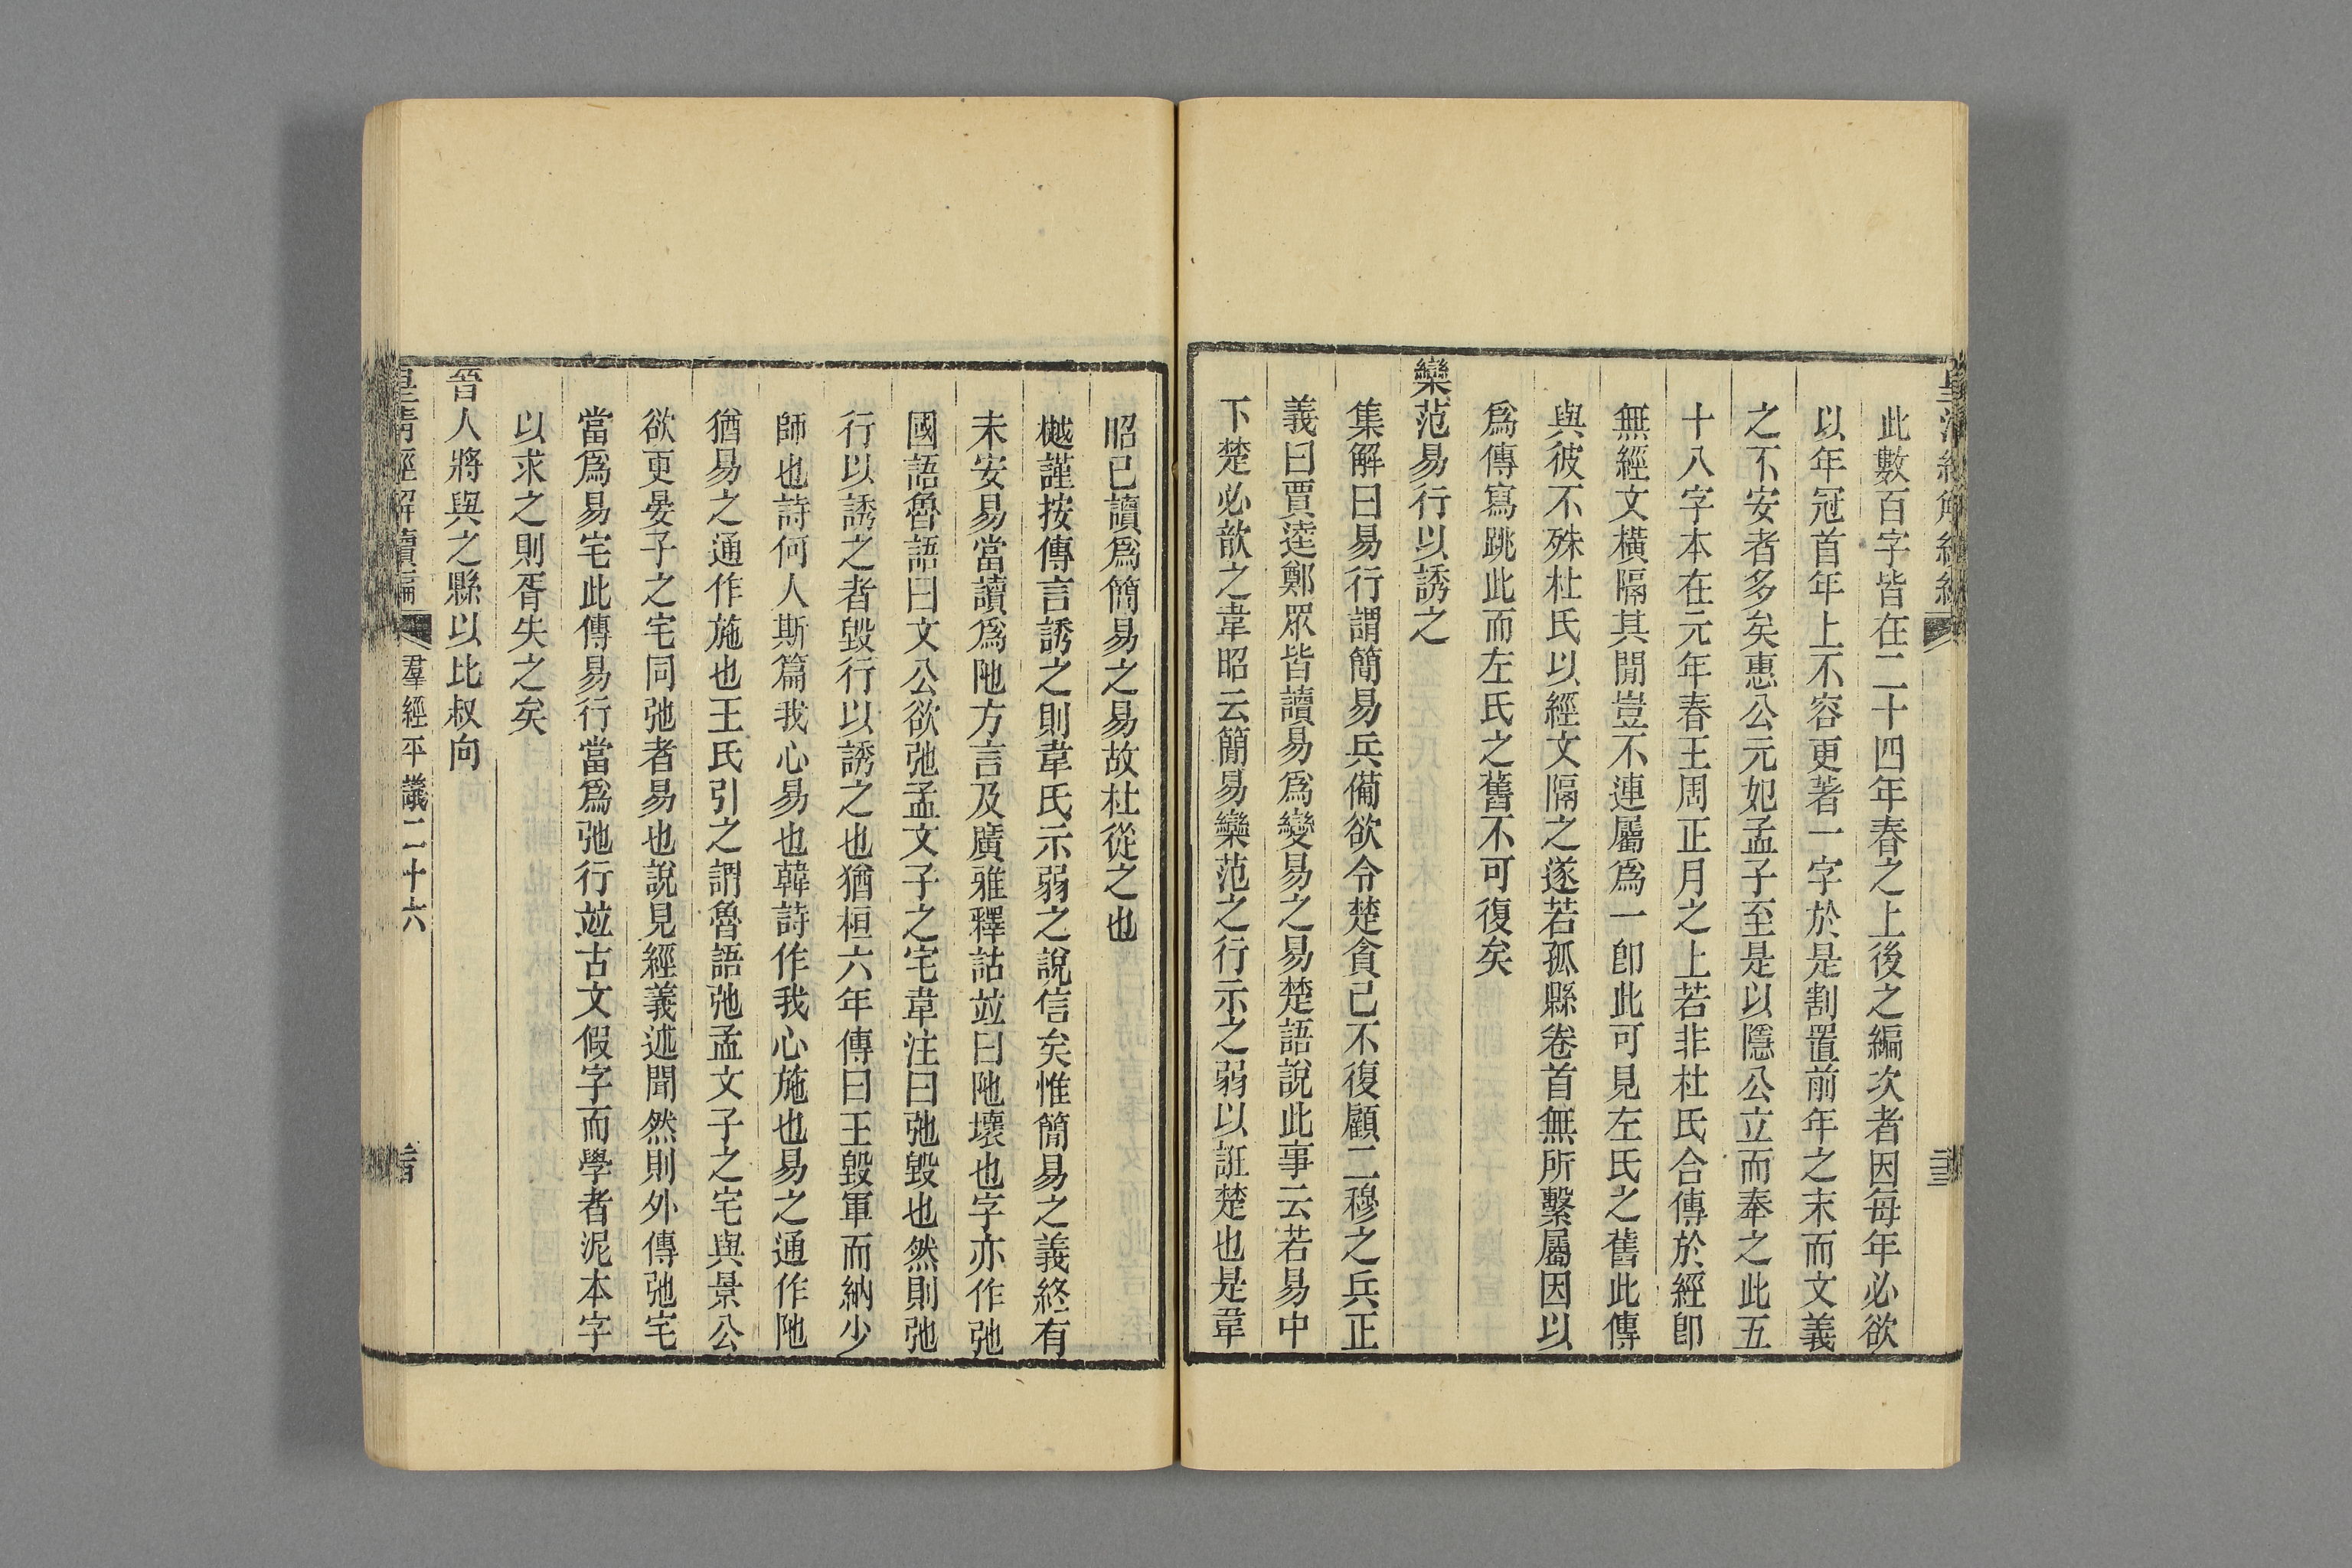 此數百字皆在二十四年春之上後之編次者因每年必欲
以年冠首年上不容更著一字於是割置前年之末而文義
之不安者多矣惠公元妃孟子至是以隱公立而奉之此五
十八字本在元年春王周正月之上若非杜氏合傳於經卽
無經文橫隔其閒豈不連屬爲一卽此可見左氏之舊此傳
與彼不殊杜氏以經文隔之遂若孤縣卷首無所繫屬因以
爲傳寫跳此而左氏之舊不可復矣
欒范易行以誘之
集解曰易行謂簡易兵備欲令楚貪己不復顧二穆之兵正
義曰賈逵鄭眾皆讀易爲變易之易楚語說此事云若易中
下楚必歆之韋昭云簡易欒范之行示之弱以誑楚也是韋
昭已讀爲簡易之易故杜從之也
樾謹按傳言誘之則韋氏示弱之說信矣惟簡易之義終有
未安易當讀爲阤方言及廣雅釋詁竝曰阤壞也字亦作弛
國語魯語曰文公欲弛孟文子之宅韋注曰弛毀也然則弛
行以誘之者毀行以誘之也猶桓六年傳曰王毀軍而納少
師也詩何人斯篇我心易也韓詩作我心施也易之通作阤
猶易之通作施也王氏引之謂魯語弛孟文子之宅與景公
欲更晏子之宅同弛者易也說見經義述聞然則外傳弛宅
當爲易宅此傳易行當爲弛行竝古文假字而學者泥本字
以求之則胥失之矣
晉人將與之縣以比叔向
皇清經解續編 羣經平議二十六